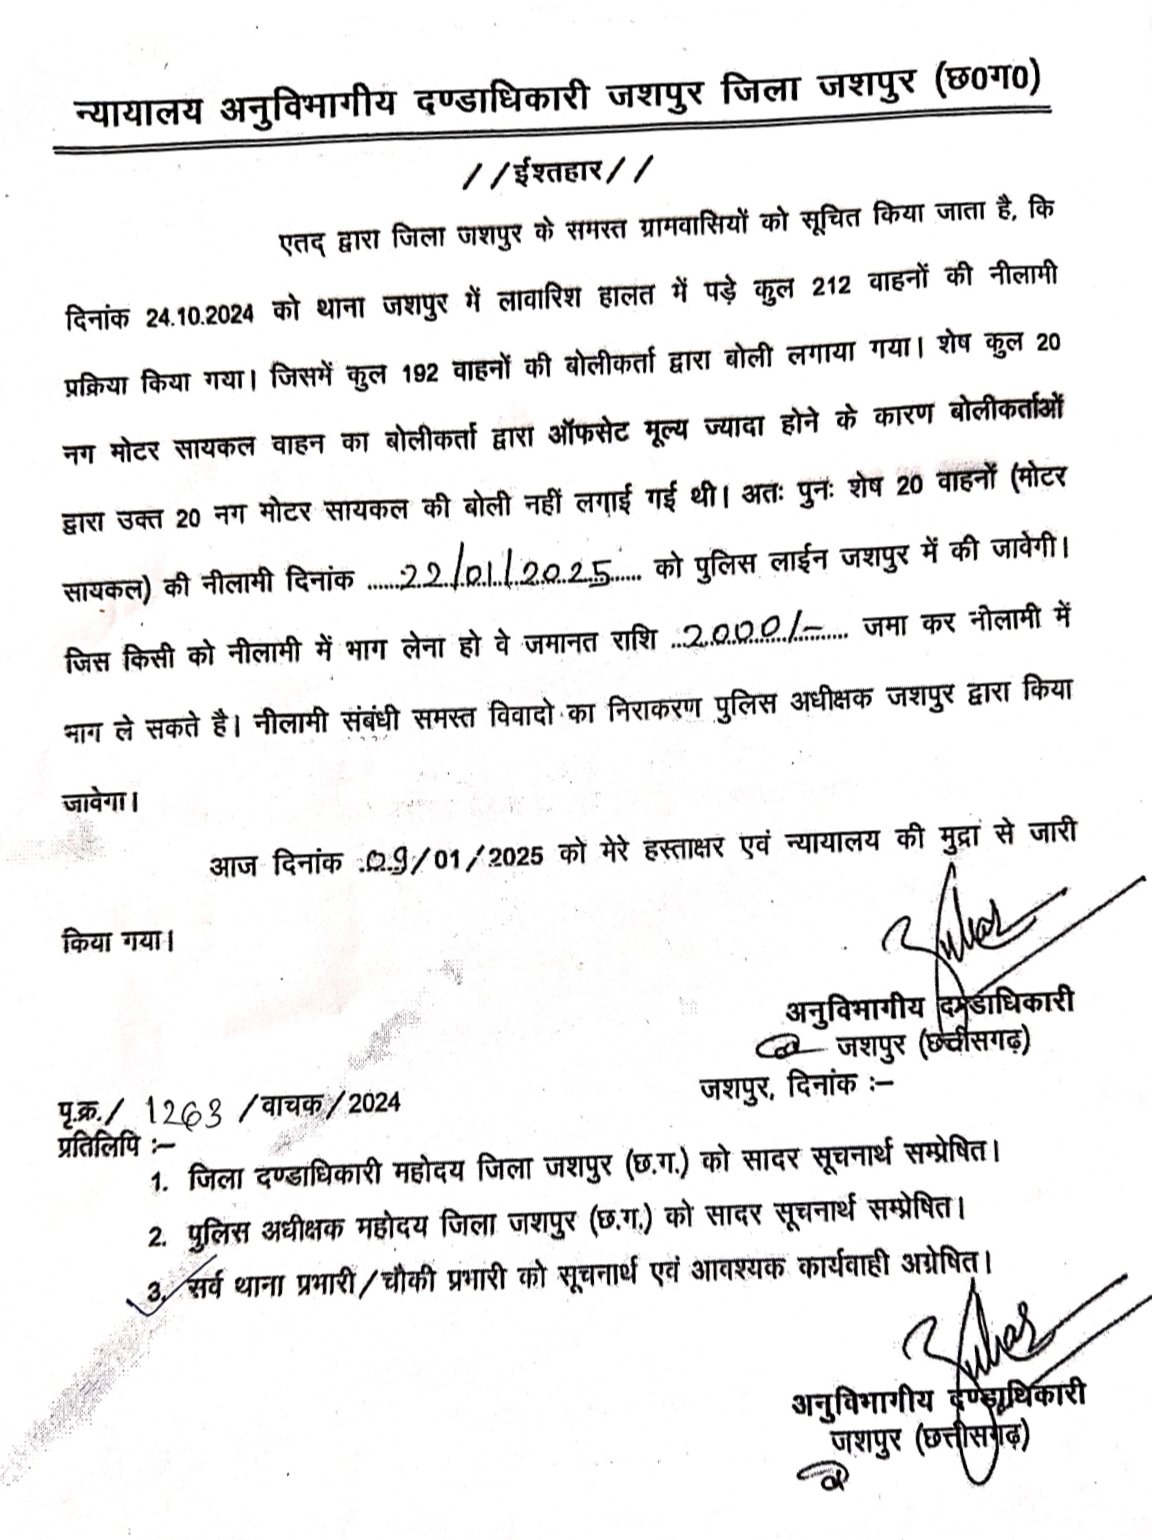 न्यायालय अनुविभागीय दण्डाधिकारी जशपुर जिला जशपुर (छ0ग0)
//ईश्तहार//
एतद् द्वारा जिला जशपुर के समस्त ग्रामवासियों को सूचित किया जाता है, कि
दिनांक 24.10.2024 को थाना जशपुर में लावारिश हालत में पड़े कुल 212 वाहनों की नीलामी
प्रक्रिया किया गया। जिसमें कुल 192 वाहनों की बोलीकर्ता द्वारा बोली लगाया गया। शेष कुल 20
नग मोटर सायकल वाहन का बोलीकर्ता द्वारा ऑफसेट मूल्य ज्यादा होने के कारण बोलीकर्ताओं
द्वारा उक्त 20 नग मोटर सायकल की बोली नहीं लगाई गई थी। अतः पुनः शेष 20 वाहनों (मोटर
सायकल) की नीलामी दिनांक ......22/01/2025...... को पुलिस लाईन जशपुर में की जावेगी।
जिस किसी को नीलामी में भाग लेना हो वे जमानत राशि ...2000/-...... जमा कर नीलामी में
भाग ले सकते है। नीलामी संबंधी समस्त विवादो का निराकरण पुलिस अधीक्षक जशपुर द्वारा किया
जावेगा।
आज दिनांक .09/01/2025 को मेरे हस्ताक्षर एवं न्यायालय की मुद्रा से जारी
किया गया।
अनुविभागीय दण्डाधिकारी
जशपुर (छत्तीसगढ़)
जशपुर, दिनांक :-
पृ.क्र./ 1263 /वाचक/2024
प्रतिलिपि :-
1. जिला दण्डाधिकारी महोदय जिला जशपुर (छ.ग.) को सादर सूचनार्थ सम्प्रेषित।
2. पुलिस अधीक्षक महोदय जिला जशपुर (छ.ग.) को सादर सूचनार्थ सम्प्रेषित।
3. सर्व थाना प्रभारी/चौकी प्रभारी को सूचनार्थ एवं आवश्यक कार्यवाही अग्रेषित।
अनुविभागीय दण्डाधिकारी
जशपुर (छत्तीसगढ़)